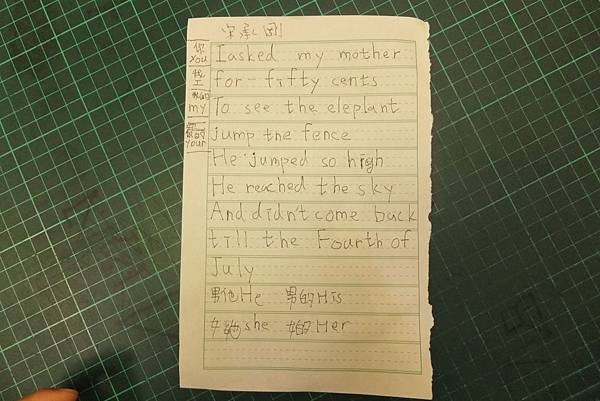 宋承剛
你 You
我 I
我的 my
你的 your
I asked my mother
for-fifty cents
To see the eleplant
jump the fence
He jumped so high
He reached the sky
And didn't come back
till the Fourth of
July
男他 He 男的 His
女她 she 女的 Her